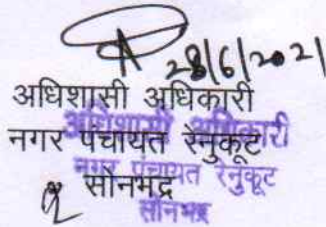 28/6/2021
अधिशासी अधिकारी
नगर पंचायत रेनुकूट
सोनभद्र
अधिशासी अधिकारी
नगर पंचायत रेनुकूट
सोनभद्र